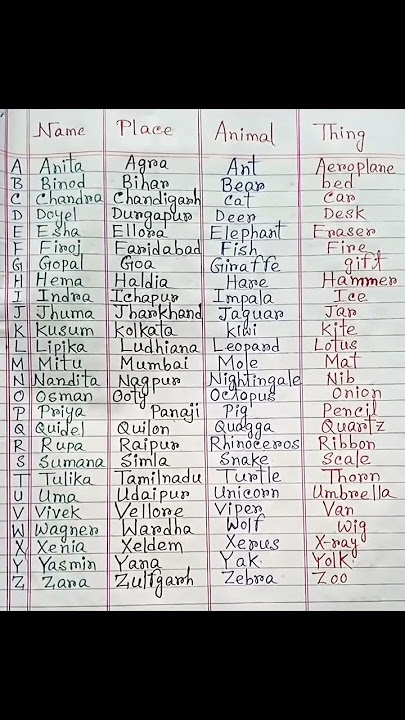 Name Place Animal Thing
A Anita Agra Ant Aeroplane
B Binod Bihar Bear bed
C Chandra Chandigarh Cat Car
D Doyel Durgapur Deer Desk
E Esha Ellora Elephant Eraser
F Firoj Faridabad Fish Fire
G Gopal Goa Giraffe gift
H Hema Haldia Hare Hammer
I Indra Ichapur Impala Ice
J Jhuma Jharkhand Jaguar Jar
K Kusum Kolkata Kiwi Kite
L Lipika Ludhiana Leopard Lotus
M Mitu Mumbai Mole Mat
N Nandita Nagpur Nightingale Nib
O Osman Ooty Octopus Onion
P Priya Panaji Pig Pencil
Q Quidel Quilon Quagga Quartz
R Rupa Raipur Rhinoceros Ribbon
S Sumana Simla Snake Scale
T Tulika Tamilnadu Turtle Thorn
U Uma Udaipur Unicorn Umbrella
V Vivek Vellore Viper Van
W Wagner Wardha Wolf Wig
X Xenia Xeldem Xerus X-ray
Y Yasmin Yana Yak Yolk
Z Zara Zulfgarh Zebra Zoo